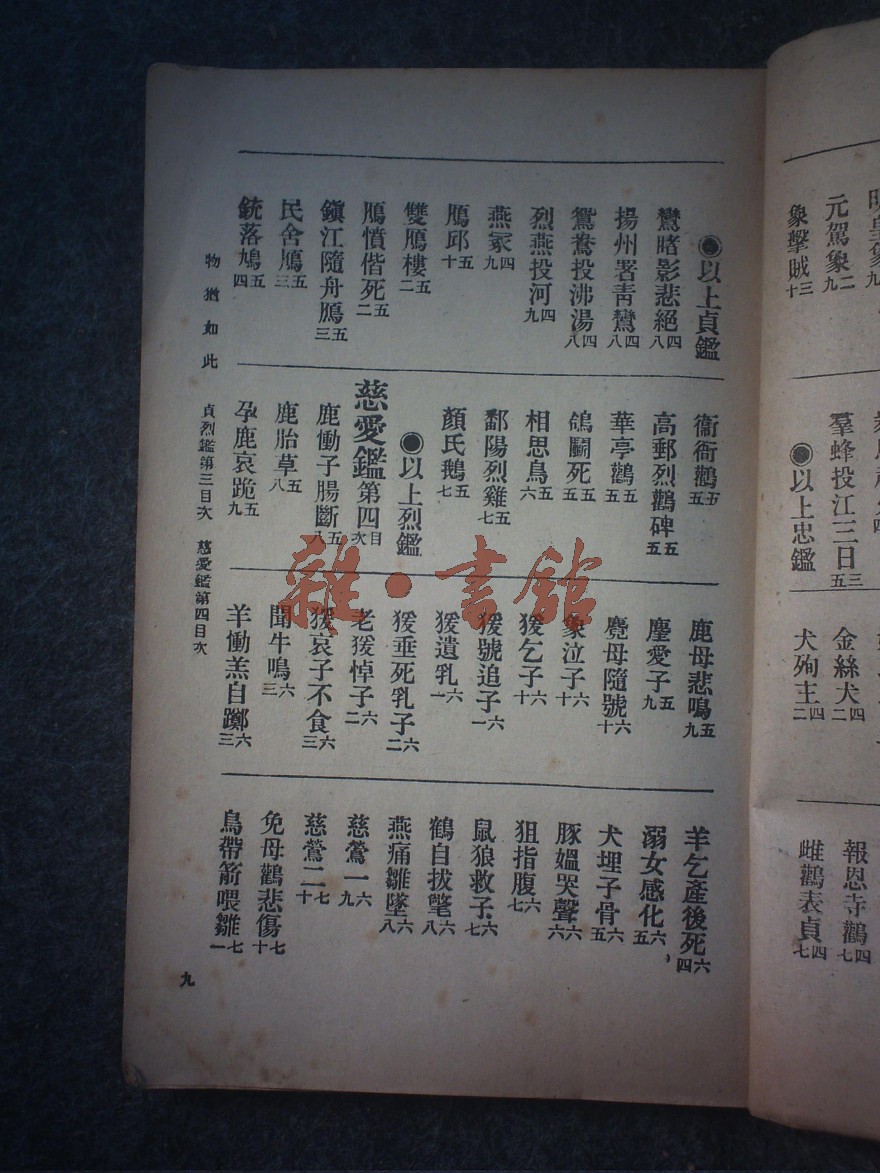 元駕象二九
象擊賊三十
羣蜂投江三日三五
●以上忠鑑
金絲犬四二
犬殉主四二
報恩寺鸛四七
雌鸛表貞四七
●以上貞鑑
鸞睹影悲絕四八
揚州署青鸞四八
鴛鴦投沸湯四八
烈燕投河四九
燕冢四九
鴈邱五十
雙鴈樓五二
鴈憤偕死五二
鎭江隨舟鴈五三
民舍鴈五三
銃落鳩五四
衞衙鸛五五
高郵烈鸛碑五五
華亭鸛五五
鴿鬭死五五
相思鳥五六
鄱陽烈雞五七
顏氏鵝五七
●以上烈鑑
慈愛鑑第四目次
鹿慟子腸斷五八
鹿胎草五八
孕鹿哀跪五九
鹿母悲鳴五九
麈愛子五九
麑母隨號六十
象泣子六十
猨乞子六十
猨號追子六一
猨遺乳六一
猨垂死乳子六二
老猨悼子六二
猨哀子不食六三
聞牛鳴六三
羊慟羔自躑六三
羊乞產後死六四
溺女感化六五
犬埋子骨六五
豚媼哭聲六六
狙指腹六七
鼠狼救子六七
鶴自拔氅六八
燕痛雛墜六八
慈鶯一六九
慈鶯二七十
免母鸛悲傷七十
鳥帶箭喂雛七一
物猶如此 貞烈鑑第三目次 慈愛鑑第四目次
九
雜·書館